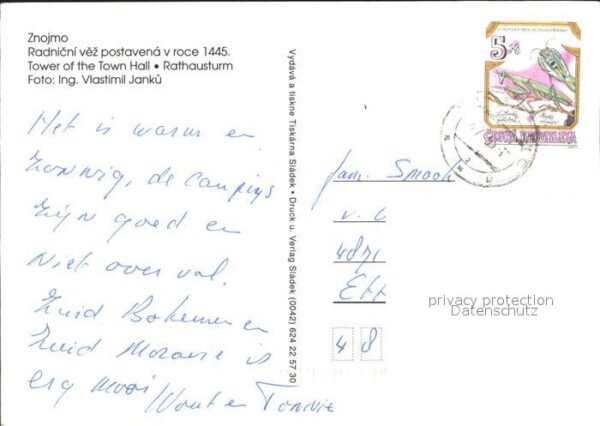 Znojmo
Radniční věž postavená v roce 1445.
Tower of the Town Hall • Rathausturm
Foto: Ing. Vlastimil Janků
Het is warm en
zonnig, de campings
zijn goed en
niet over vol.
Zuid Bohemen en
Zuid Moravie is
erg mooi
Wout en
Vydává a tiskne Tiskárna Sládek • Druck u. Verlag Sládek (0042) 624 22 57 30
5 Kčs
Fam. Smook
v. C
4871
Ett
4 8
privacy protection
Datenschutz